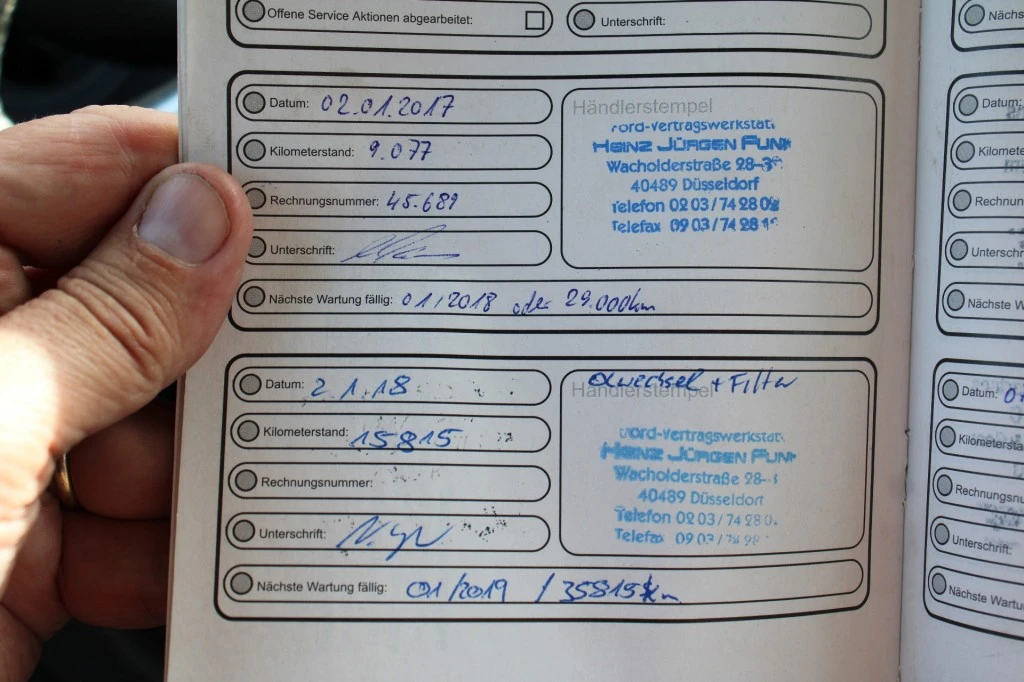 Offene Service Aktionen abgearbeitet:
Unterschrift:
Datum: 02.01.2017
Kilometerstand: 9.077
Rechnungsnummer: 45.689
Unterschrift:
Nächste Wartung fällig: 01/2018 oder 29.000km
Händlerstempel
ord-Vertragswerkstat
HEINZ JÜRGEN FUNK
Wacholderstraße 28-3
40489 Düsseldorf
Telefon 02 03/74 28 0
Telefax 09 03/74 28 1
Datum: 2.1.18
Kilometerstand: 15815
Rechnungsnummer:
Unterschrift:
Nächste Wartung fällig: 01/2019 / 35815km
Ölwechsel + Filter
Händlerstempel
ord-Vertragswerkstat
HEINZ JÜRGEN FUNK
Wacholderstraße 28-
40489 Düsseldorf
Telefon 02 03/74 28 0
Telefax 09 03/74 28
Nächs
Datum:
Kilomete
Rechnun
Unterschr
Nächste W
Datum: 0
Kilometersta
Rechnungsnu
Unterschrift:
Nächste Wartu